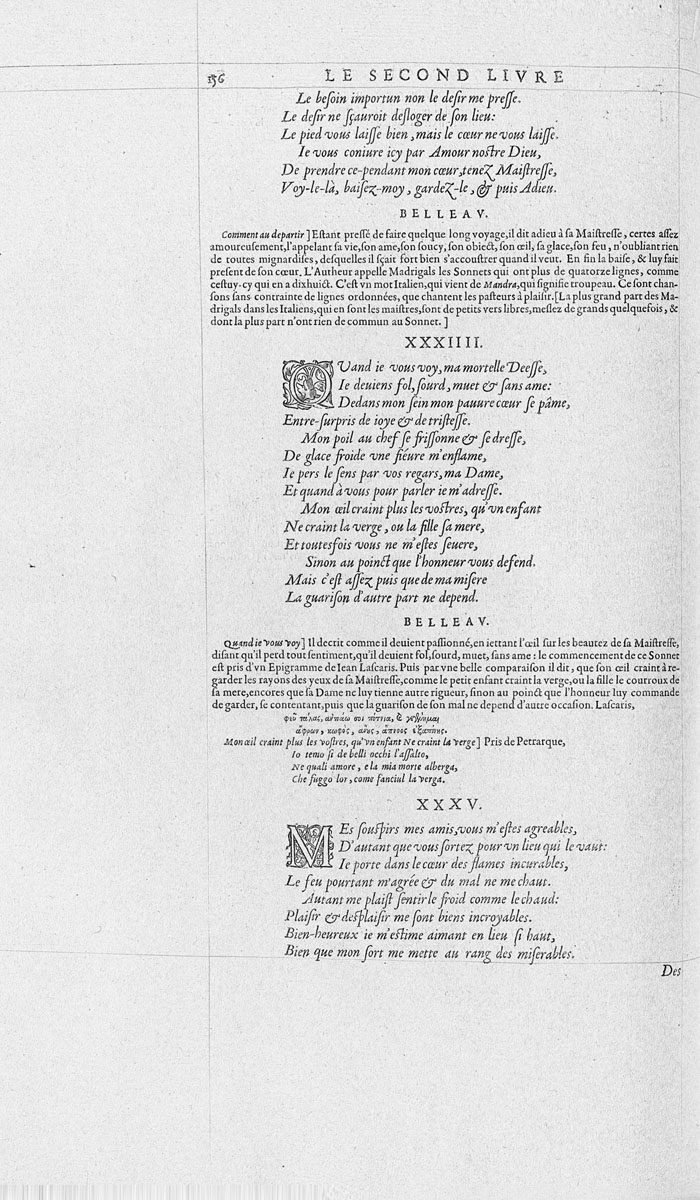 156 LE SECOND LIVRE
Le beſoin importun non le deſir me preſſe.
Le deſir ne ſçauroit deſloger de ſon lieu:
Le pied vous laiſſe bien, mais le cœur ne vous laiſſe.
Ie vous coniure icy par Amour noſtre Dieu,
De prendre ce-pendant mon cœur, tenez Maiſtreſſe,
Voy-le-là, baiſez-moy, gardez-le, & puis Adieu.
BELLEAV.
Comment au departir] Eſtant preſſé de faire quelque long voyage, il dit adieu à ſa Maiſtreſſe, certes aſſez
amoureuſement, l'appelant ſa vie, ſon ame, ſon ſoucy, ſon obiect, ſon œil, ſa glace, ſon feu, n'oubliant rien
de toutes mignardiſes, deſquelles il ſçait fort bien s'accouſtrer quand il veut. En fin la baiſe, & luy fait
preſent de ſon cœur. L'Autheur appelle Madrigals les Sonnets qui ont plus de quatorze lignes, comme
ceſtuy-cy qui en a dixhuict. C'eſt vn mot Italien, qui vient de Mandra, qui ſignifie troupeau. Ce ſont chan-
ſons ſans contrainte de lignes ordonnées, que chantent les paſteurs à plaiſir. [La plus grand part des Ma-
drigals dans les Italiens, qui en ſont les maiſtres, ſont de petits vers libres, meſlez de grands quelquefois, &
dont la plus part n'ont rien de commun au Sonnet. ]
XXXIIII.
QVand ie vous voy, ma mortelle Deeſſe,
Ie deuiens fol, ſourd, muet & ſans ame:
Dedans mon ſein mon pauure cœur ſe pâme,
Entre-ſurpris de ioye & de triſteſſe.
Mon poil au chef ſe friſſonne & ſe dreſſe,
De glace froide vne fiéure m'enflame,
Ie pers le ſens par vos regars, ma Dame,
Et quand à vous pour parler ie m'adreſſe.
Mon œil craint plus les voſtres, qu'vn enfant
Ne craint la verge, ou la fille ſa mere,
Et toutesfois vous ne m'eſtes ſeuere,
Sinon au poinct que l'honneur vous defend.
Mais c'eſt aſſez puis que de ma miſere
La guariſon d'autre part ne depend.
BELLEAV.
Quand ie vous voy] Il decrit comme il deuient paſſionné, en iettant l'œil ſur les beautez de ſa Maiſtreſſe,
diſant qu'il perd tout ſentiment, qu'il deuient fol, ſourd, muet, ſans ame: le commencement de ce Sonnet
eſt pris d'vn Epigramme de Iean Laſcaris. Puis par vne belle comparaiſon il dit, que ſon œil craint à re-
garder les rayons des yeux de ſa Maiſtreſſe, comme le petit enfant craint la verge, ou la fille le courroux de
ſa mere, encores que ſa Dame ne luy tienne autre rigueur, ſinon au poinct que l'honneur luy commande
de garder, ſe contentant, puis que la guariſon de ſon mal ne depend d'autre occaſion. Laſcaris,
Mon œil craint plus les voſtres, qu'vn enfant Ne craint la verge] Pris de Petrarque,
Io temo ſi de belli occhi l'aſſalto,
Ne quali amore, e la mia morte alberga,
Che fuggo lor, come fanciul la verga.
XXXV.
MEs ſouſpirs mes amis, vous m'eſtes agreables,
D'autant que vous ſortez pour vn lieu qui le vaut:
Ie porte dans le cœur des flames incurables,
Le feu pourtant m'agrée & du mal ne me chaut.
Autant me plaiſt ſentir le froid comme le chaud:
Plaiſir & deſplaiſir me ſont biens incroyables.
Bien-heureux ie m'eſtime aimant en lieu ſi haut,
Bien que mon ſort me mette au rang des miſerables.
Des